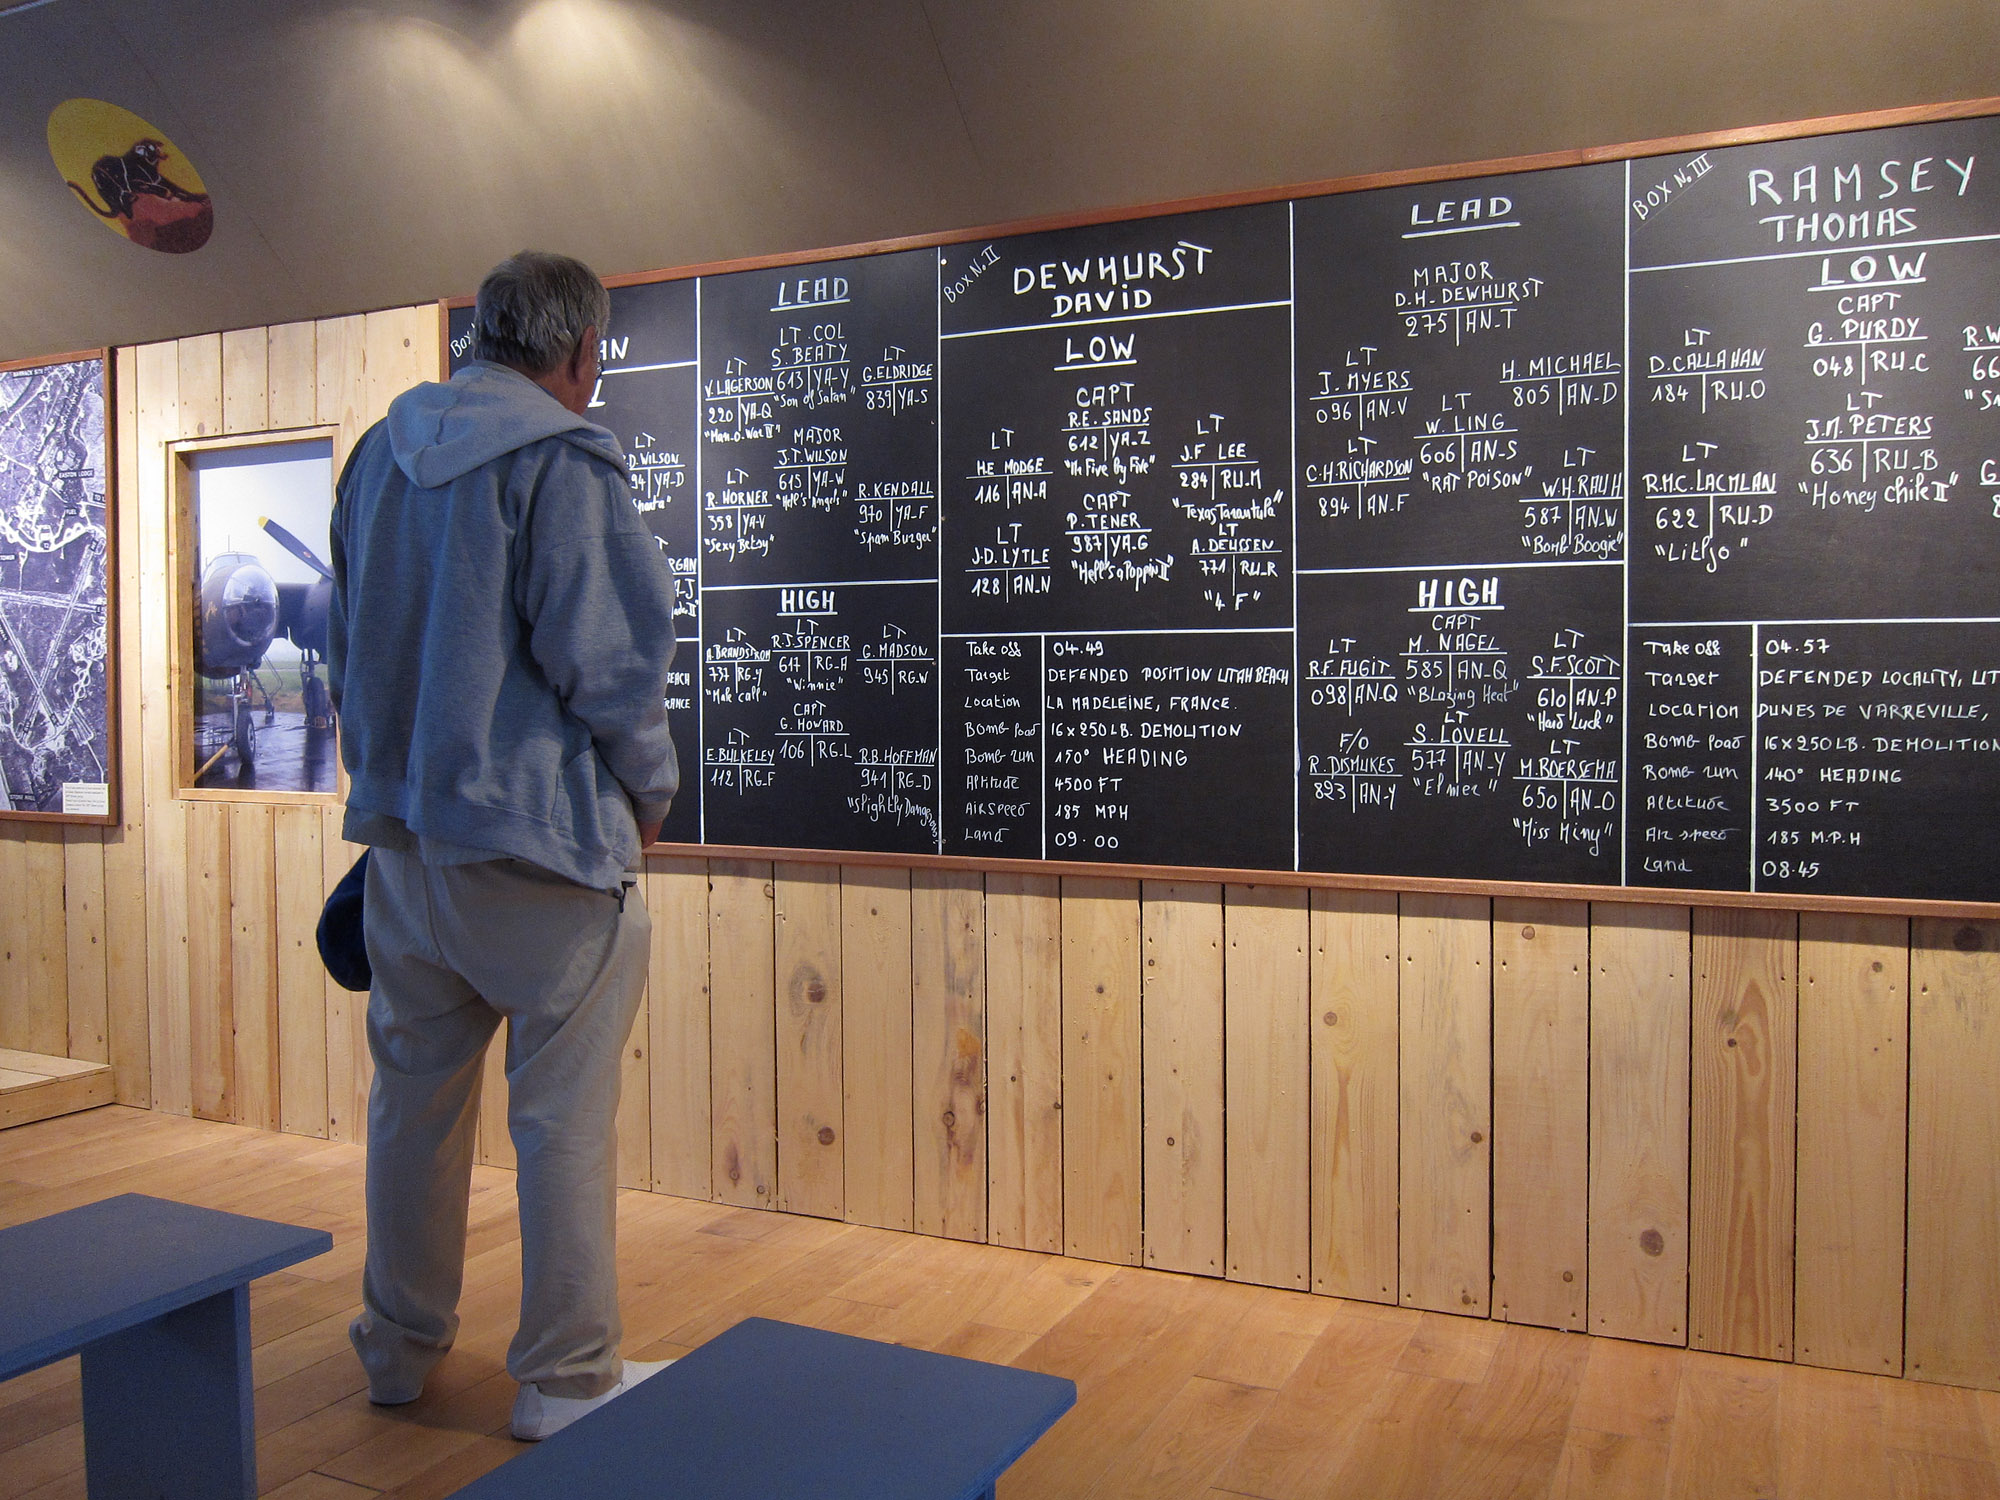 BOX
AN
LT
D. WILSON
94 YA-D
LT
J
EACH
ANCE
LEAD
LT. COL
S. BEATY
613 YA-Y
"Son of Satan"
LT
V. LAGERSON
220 YA-Q
"Man-O-War II"
LT
G. ELDRIDGE
839 YA-S
MAJOR
J.T. WILSON
615 YA-W
"Hell's Angels"
LT
R. HORNER
358 YA-V
"Sexy Betsy"
R. KENDALL
970 YA-F
"Spam Burger"
HIGH
LT
R.J. SPENCER
647 RG-A
"Winnie"
LT
A. BRANDSTROM
737 RG-Y
"Male call"
LT
G. MADSON
945 RG-W
CAPT
G. HOWARD
106 RG-L
LT
E. BULKELEY
112 RG-F
R.B. HOFFMAN
941 RG-D
"Slightly Dangerous"
BOX N. II
DEWHURST
DAVID
LOW
CAPT
R.E. SANDS
612 YA-Z
"Five By Five"
LT
H.E MODGE
116 AN-A
LT
J.F LEE
284 RU-M
"Texas Tarantula"
CAPT
P. TENER
987 YA-G
"Hell's a Poppin II"
LT
J.D. LYTLE
128 AN-N
LT
A. DEUSSEN
771 RU-R
"4 F"
Take off 04.49
Target DEFENDED POSITION UTAH BEACH
Location LA MADELEINE, FRANCE.
Bomb load 16x250LB. DEMOLITION
Bomb run 150° HEADING
Altitude 4500 FT
Airspeed 185 MPH
Land 09.00
LEAD
MAJOR
D.H- DEWHURST
275 AN-T
LT
J. MYERS
096 AN-V
H. MICHAEL
805 AN-D
LT
W. LING
606 AN-S
"RAT POISON"
LT
C.H. RICHARDSON
894 AN-F
LT
W.H. RAUH
587 AN-W
"Bomb Boogie"
HIGH
CAPT
M. NAGEL
585 AN-Q
"Blazing Heat"
LT
R.F. FUGIT
098 AN-Q
LT
S.F. SCOTT
610 AN-P
"Hard Luck"
LT
S. LOVELL
577 AN-Y
"Elmer"
F/O
R. DISMUKES
823 AN-Y
LT
M. BOERSEMA
650 AN-O
"Miss Miny"
BOX N. III
RAMSEY
THOMAS
LOW
CAPT
G. PURDY
048 RU-C
LT
D. CALLAHAN
184 RU-O
R.W
66
LT
J.M. PETERS
636 RU-B
"Honey Chile II"
LT
R.MC. LACMLAN
622 RU-D
"Lit'ljo"
G
Take off 04.57
Target DEFENDED LOCALITY, UT
Location DUNES DE VARREVILLE,
Bomb load 16x250LB. DEMOLITION
Bomb run 140° HEADING
Altitude 3500 FT
Air speed 185 M.P.H
Land 08.45